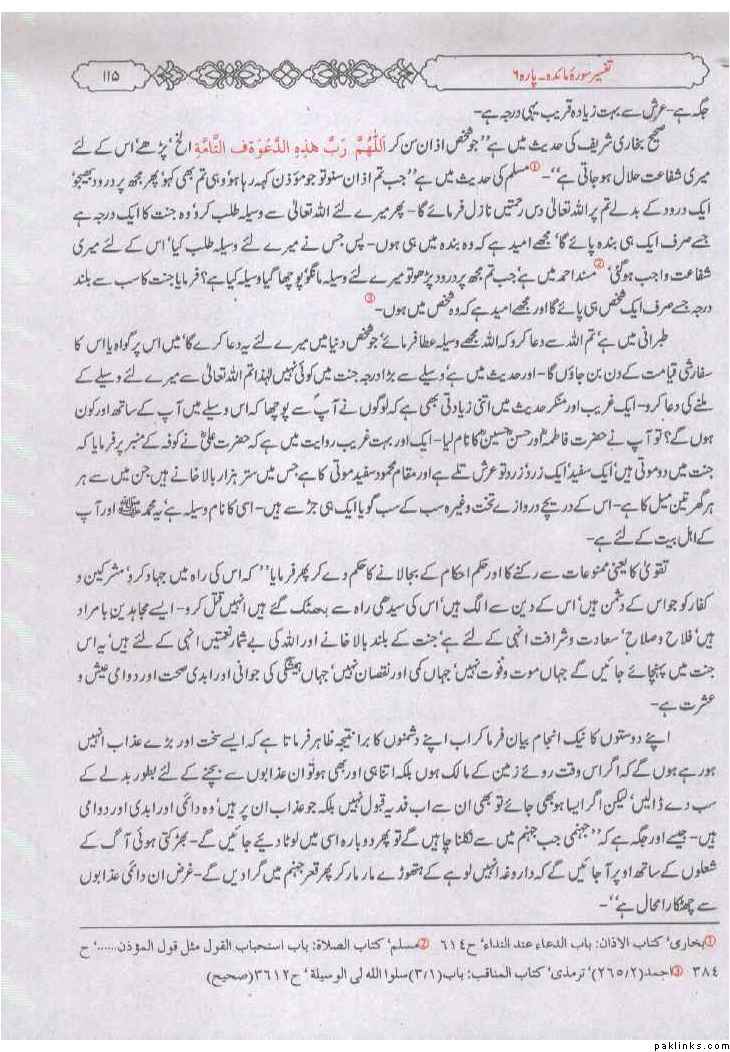 تفسیر سورۂ مائدہ۔ پارہ ۶
۱۱۵
جگہ ہے۔ عرش سے بہت زیادہ قریب یہی درجہ ہے۔
صحیح بخاری شریف کی حدیث میں ہے ’’جو شخص اذان سن کر اَللّٰهُمَّ رَبَّ هٰذِهِ الدَّعْوَةِ التَّامَّةِ الخ‘ پڑھے‘ اس کے لئے
میری شفاعت حلال ہو جاتی ہے‘‘۔ ① مسلم کی حدیث میں ہے ’’جب تم اذان سنو تو جو مؤذن کہہ رہا ہو وہی تم بھی کہو‘ پھر مجھ پر درود بھیجو‘
ایک درود کے بدلے تم پر اللہ تعالیٰ دس رحمتیں نازل فرمائے گا۔ پھر میرے لئے اللہ تعالیٰ سے وسیلہ طلب کرو‘ وہ جنت کا ایک درجہ ہے
جسے صرف ایک ہی بندہ پائے گا‘ مجھے امید ہے کہ وہ بندہ میں ہی ہوں۔ پس جس نے میرے لئے وسیلہ طلب کیا‘ اس کے لئے میری
شفاعت واجب ہو گئی‘ ② مسند احمد میں ہے‘ جب تم مجھ پر درود پڑھو تو میرے لئے وسیلہ مانگو‘ پوچھا گیا وسیلہ کیا ہے؟ فرمایا جنت کا سب سے بلند
درجہ جسے صرف ایک شخص ہی پائے گا اور مجھے امید ہے کہ وہ شخص میں ہوں۔ ③
طبرانی میں ہے‘ تم اللہ سے دعا کرو کہ اللہ مجھے وسیلہ عطا فرمائے‘ جو شخص دنیا میں میرے لئے یہ دعا کرے گا‘ میں اس پر گواہ یا اس کا
سفارشی قیامت کے دن بن جاؤں گا۔ اور حدیث میں ہے‘ وسیلے سے بڑا درجہ جنت میں کوئی نہیں لہٰذا تم اللہ تعالیٰ سے میرے لئے وسیلے کے
ملنے کی دعا کرو۔ ایک غریب اور منکر حدیث میں اتنی زیادتی بھی ہے کہ لوگوں نے آپ سے پوچھا کہ اس وسیلے میں آپ کے ساتھ اور کون
ہوں گے؟ تو آپ نے حضرت فاطمہ اور حسن حسین کا نام لیا۔ ایک اور بہت غریب روایت میں ہے کہ حضرت علی نے کوفہ کے منبر پر فرمایا کہ
جنت میں دو موتی ہیں‘ ایک سفید‘ ایک زرد‘ زرد تو عرش تلے ہے اور مقام محمود سفید موتی کا ہے جس میں ستر ہزار بالا خانے ہیں جن میں سے ہر
ہر گھر تین میل کا ہے۔ اس کے دریچے دروازے تخت وغیرہ سب کے سب گویا ایک ہی جڑ سے ہیں۔ اسی کا نام وسیلہ ہے‘ یہ محمد ﷺ اور آپ
کے اہل بیت کے لئے ہے۔
تقویٰ کا یعنی ممنوعات سے رکنے کا اور حکم احکام کے بجا لانے کا حکم دے کر پھر فرمایا ’’کہ اس کی راہ میں جہاد کرو‘ مشرکین و
کفار کو جو اس کے دشمن ہیں‘ اس کے دین سے الگ ہیں‘ اس کی سیدھی راہ سے بھٹک گئے ہیں‘ انہیں قتل کرو۔ ایسے مجاہدین بامراد
ہیں‘ فلاح و صلاح‘ سعادت و شرافت انہی کے لئے ہے‘ جنت کے بلند بالا خانے اور اللہ کی بے شمار نعمتیں انہی کے لئے ہیں‘ یہ اس
جنت میں پہنچائے جائیں گے جہاں موت و فوت نہیں‘ جہاں کمی اور نقصان نہیں‘ جہاں ہمیشگی کی جوانی اور ابدی صحت اور دوامی عیش و
عشرت ہے۔
اپنے دوستوں کا نیک انجام بیان فرما کر اب اپنے دشمنوں کا برا نتیجہ ظاہر فرماتا ہے کہ ایسے سخت اور بڑے عذاب انہیں
ہو رہے ہوں گے کہ اگر اس وقت روئے زمین کے مالک ہوں بلکہ اتنا ہی اور بھی ہو تو ان عذابوں سے بچنے کے لئے بطور بدلے کے
سب دے ڈالیں‘ لیکن اگر ایسا ہو بھی جائے تو بھی ان سے اب فدیہ قبول نہیں بلکہ جو عذاب ان پر ہیں‘ وہ دائمی اور ابدی اور دوامی
ہیں۔ جیسے اور جگہ ہے کہ ’’جہنمی جب جہنم میں سے نکلنا چاہیں گے تو پھر دوبارہ اسی میں لوٹا دیئے جائیں گے۔ بھڑکتی ہوئی آگ کے
شعلوں کے ساتھ اوپر آ جائیں گے کہ داروغہ انہیں لوہے کے ہتھوڑے مار مار کر پھر قعر جہنم میں گرا دیں گے۔ غرض ان دائمی عذابوں
سے چھٹکارا محال ہے‘‘۔
①بخاری‘ کتاب الاذان: باب الدعاء عند النداء‘ ح٦١٤ ②مسلم‘ کتاب الصلاة: باب استحباب القول مثل قول المؤذن......‘ ح
٣٨٤ ③احمد(٢٦٥/٢)‘ ترمذی‘ کتاب المناقب: باب(٣/١)سلوا الله لی الوسیلة‘ ح٣٦١٢(صحیح)
paklinks.com